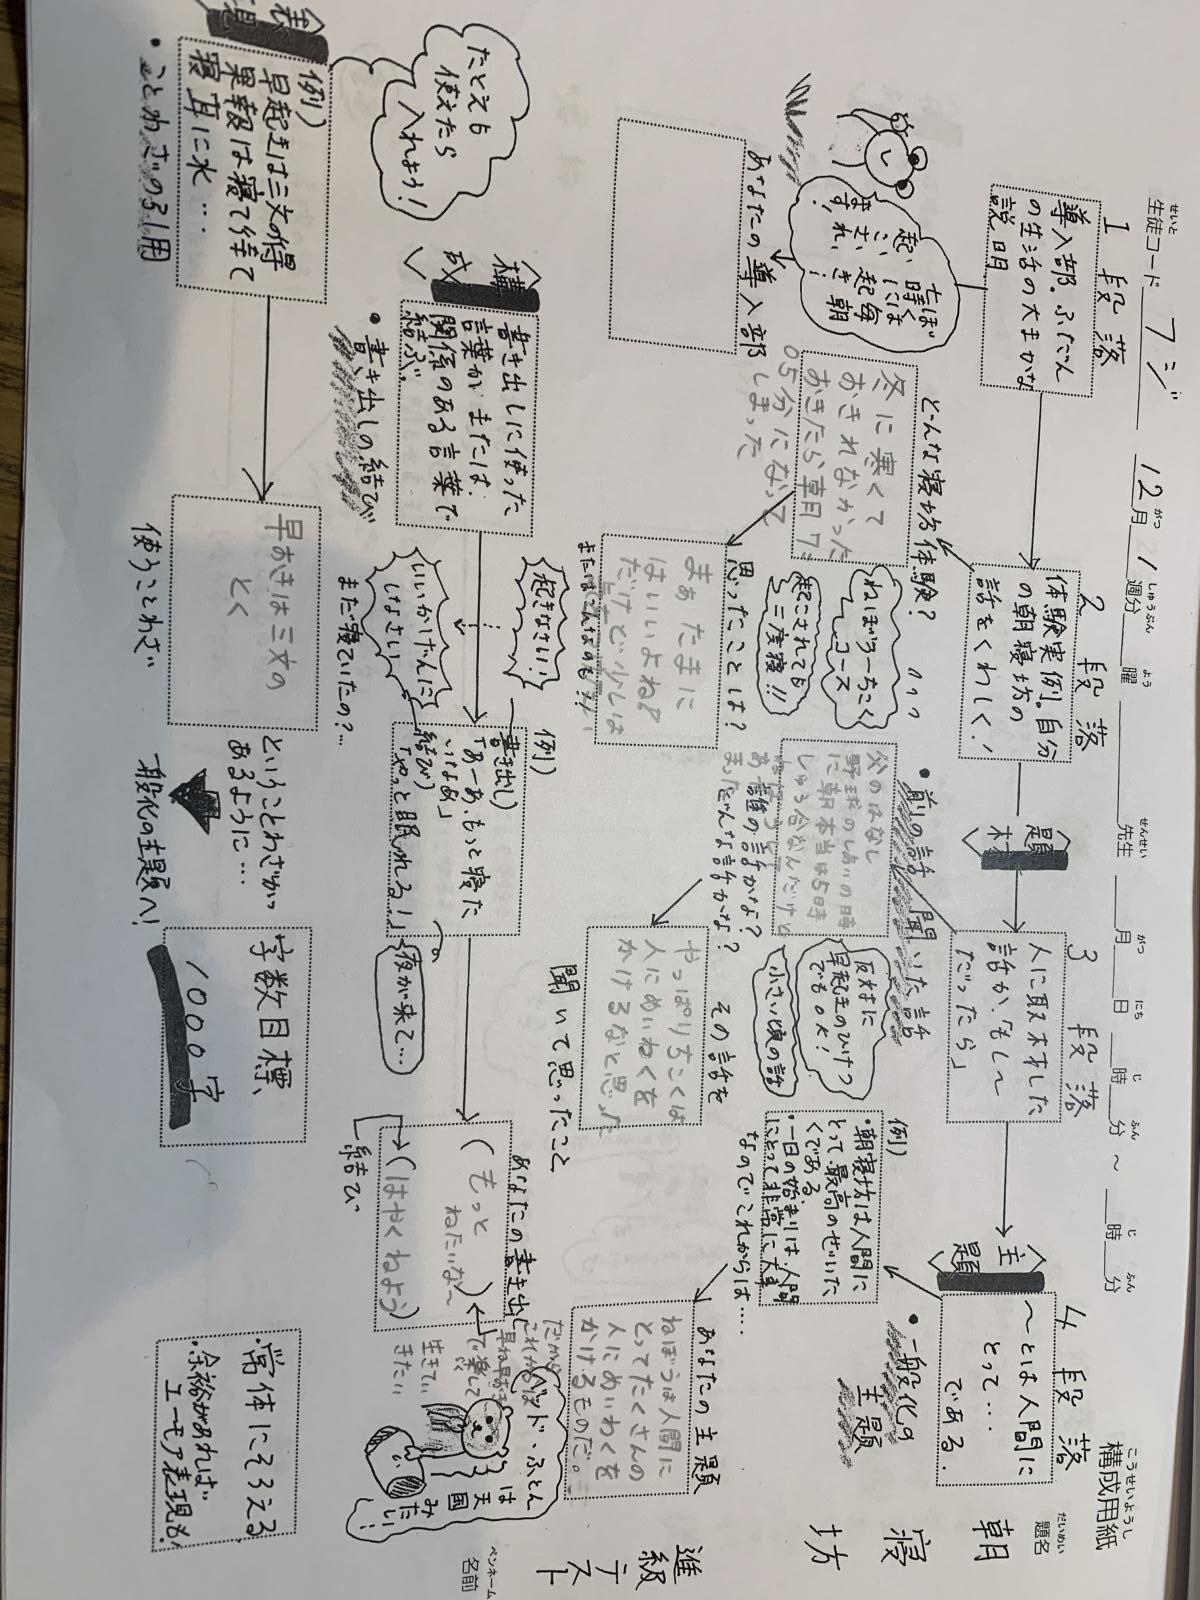 構成用紙
こうせいようし
題名
だいめい
朝寝坊
進級テスト
ペンネーム
名前
生徒コード フジ
せいと
12月 1週分
がつ しゅうぶん
曜
よう
先生
せんせい
月 日 時 分 ~ 時 分
がつ にち じ ふん じ ふん
1段落
導入部.ふだん
の生活の大まかな
説明
ぼくは
七時に
起こさ
れ、毎朝
起き
ます!
あなたの導入部
2段落
体験実例。自分
の朝寝坊の
話をくわしく!
どんな寝坊体験?
冬に寒くて
おきれなかった
おきたら朝7:
05分になって
しまった
ねぼうっちこく
コース
起こされても
二度寝!!
思ったことは?
まぁたまに
はいいよね?
だけど少しは
またはこんなのも…
題材
3段落
人に取材した
話か、「もし〜
だったら」
・前の話 聞いた話
父のはなし
野球のしあいの時
に朝本当は5時
しゅう合なんだけど
反対に
早起きのひけつ
でもOK!
小さい頃の話
誰の話かな?
またどんな話かな?
その話を
聞いて思ったこと
やっぱりちこくは
人にめいわくを
かけるなと思った
主題
4段落
〜とは人間に
とって…
である.
・一般化の
主題
例)
・朝寝坊は人間に
とって、最高のぜいた
くである
・一日の始まりは、人間
にとって非常に大事
なのでこれからは…
あなたの主題
ねぼうは人間に
とってたくさんの
人にめいわくを
かけるものだ。
だから
これからは
早ね早おき
で楽して
生きてい
きたい
ベッド・ふとん
は
天国
みたい!
<構成>
書き出しに使った
言葉か または、
関係のある言葉で
結ぶ.
・書き出しの結び
起きなさい!!
いいかげんに
しなさい
まだ寝ていたの?…
例)
書き出し)
「あーあ、もっと寝た
いなあ」
結び)
「やっと眠れる!」
夜が来て…
あなたの書き出し
(もっと
ねたいな〜)
(はやくねよう)
結び
たとえも
使えたら
入れよう!
<表現>
例)
早起きは三文の得
果報は寝て待て
寝耳に水…
・ことわざの引用
早おきは三文の
とく
使うことわざ
ということわざが
あるように…
一般化の主題へ!
字数目標、
1000字
・常体にそろえる
・余裕があれば
ユーモア表現も!